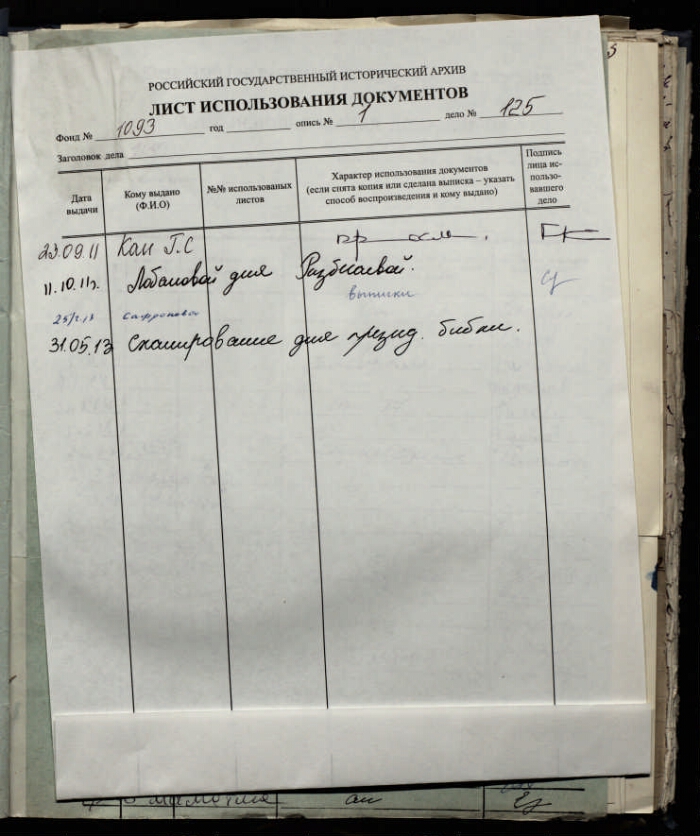 РОССИЙСКИЙ ГОСУДАРСТВЕННЫЙ ИСТОРИЧЕСКИЙ АРХИВ
ЛИСТ ИСПОЛЬЗОВАНИЯ ДОКУМЕНТОВ
Фонд № 1093 год опись № 1 дело № 125
Заголовок дела
Дата выдачи
Кому выдано (Ф.И.О)
№№ использованых листов
Характер использования документов (если снята копия или сделана выписка – указать способ воспроизведения и кому выдано)
Подпись лица использовавшего дело
23.09.11 Кан Г.С
11.10.11г. Лобановой для
выписки
31.05.13 Сканирование для презид. библи.